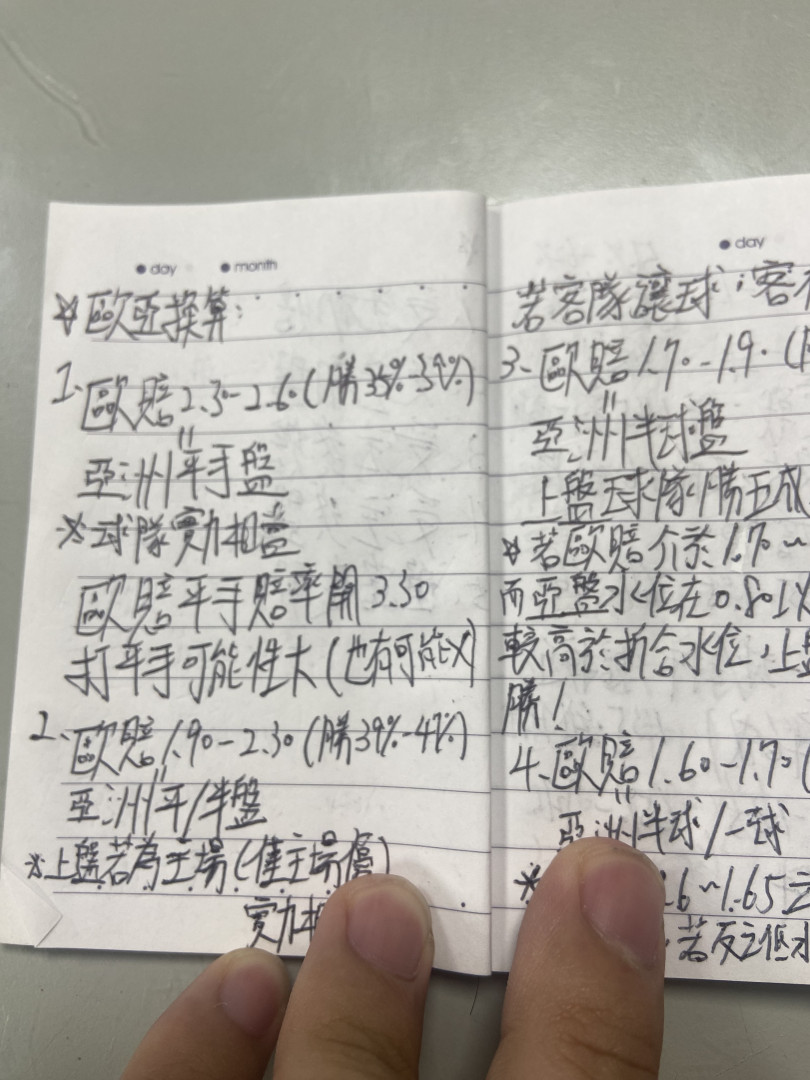 day month
☆歐亞換算:
1. 歐賠2.30-2.60(勝35%-39%)
=
亞洲平手盤
※球隊實力相當
歐賠平手賠率開3.30
打平手可能性大(也有可能X)
2. 歐賠1.90-2.30(勝39%-47%)
=
亞洲平/半盤
※上盤若為主場(僅主場優)
實力相
day
若客隊讓球;客
3. 歐賠1.70-1.90(
=
亞洲半球盤
上盤球隊勝五成
☆若歐賠介於1.70~
而亞盤水位在0.80以
較高於折合水位,上盤
勝!
4. 歐賠1.60-1.70(
=
亞洲半球/一球
※ .6~1.65之
若反之低水